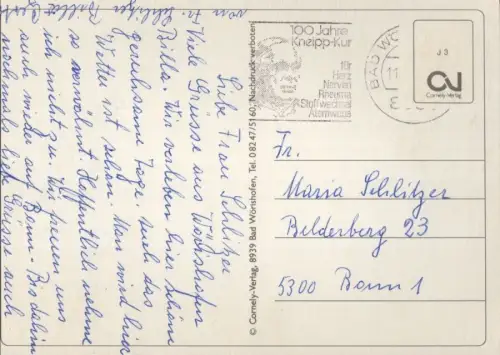 Liebe Frau Schlitzer
Viele Grüsse aus Wörishofen
Wir verleben hier schöne
geruhsame Tage auch das
Wetter ist schön. Man wird hier
so verwöhnt Hoffentlich nehme
ich nicht zu. Wir freuen uns
auch wieder auf Bonn. Bis dahin
nochmals liebe Grüsse auch
von Fr. Schlitzer
© Cornely-Verlag, 8939 Bad Wörishofen, Tel. 08247/5160, Nachdruck verboten
100 Jahre
Kneipp-Kur
für
Herz
Nerven
Rheuma
Stoffwechsel
Atemwege
BAD WÖ
11
J 3
Cornely-Verlag
Fr.
Maria Schlitzer
Belderberg 23
5300 Bonn 1